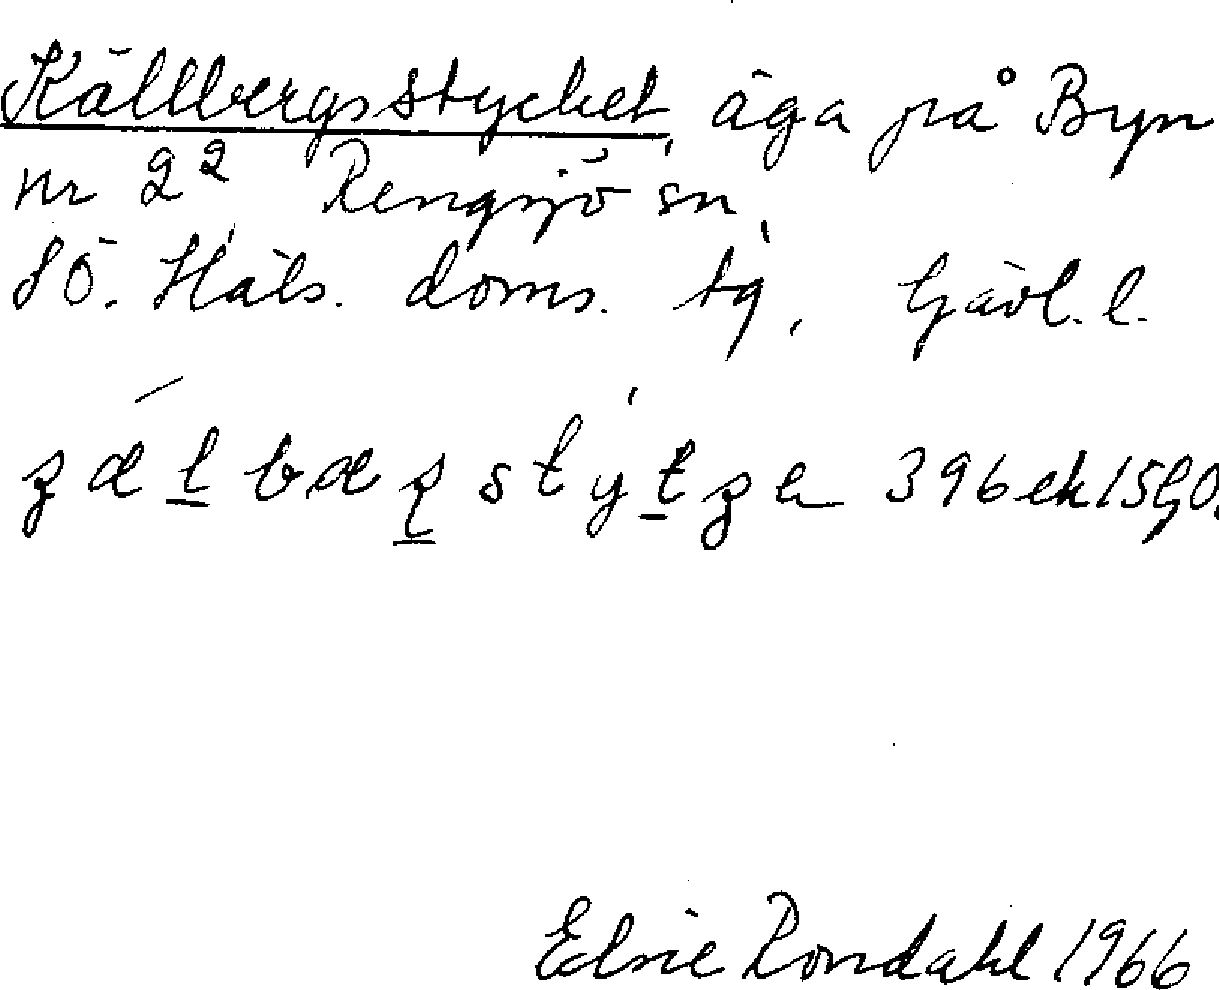 Källbergsstycket, äga på Byn
nr 2² Rengsjö sn,
Sö. Häls. doms. tg, Gävl. l.
396 ek 15 GO.
Elsie Rondahl 1966